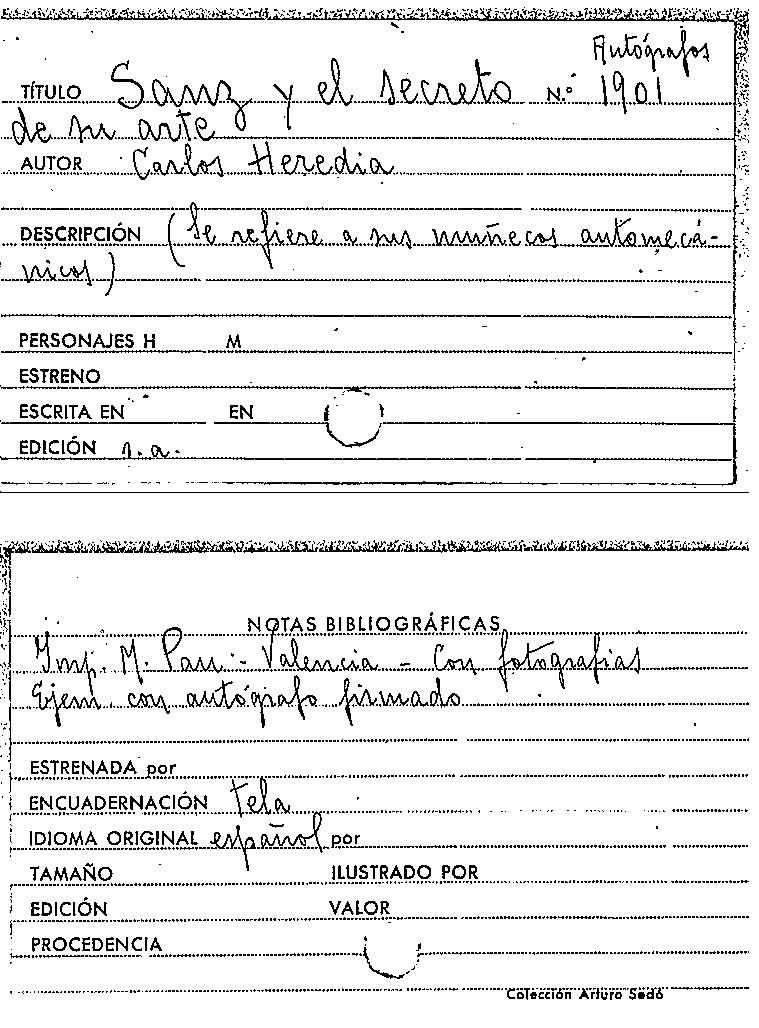 Autógrafos
TÍTULO Sanz y el secreto N.º 1901
de su arte
AUTOR Carlos Heredia
DESCRIPCIÓN (Se refiere a sus muñecos automecá-
nicos)
PERSONAJES H M
ESTRENO
ESCRITA EN EN
EDICIÓN s.a.
NOTAS BIBLIOGRÁFICAS
Imp. M. Pau - Valencia - Con fotografias
Ejem. con autógrafo firmado
ESTRENADA por
ENCUADERNACIÓN Tela
IDIOMA ORIGINAL español por
TAMAÑO ILUSTRADO POR
EDICIÓN VALOR
PROCEDENCIA
Colección Arturo Sedó